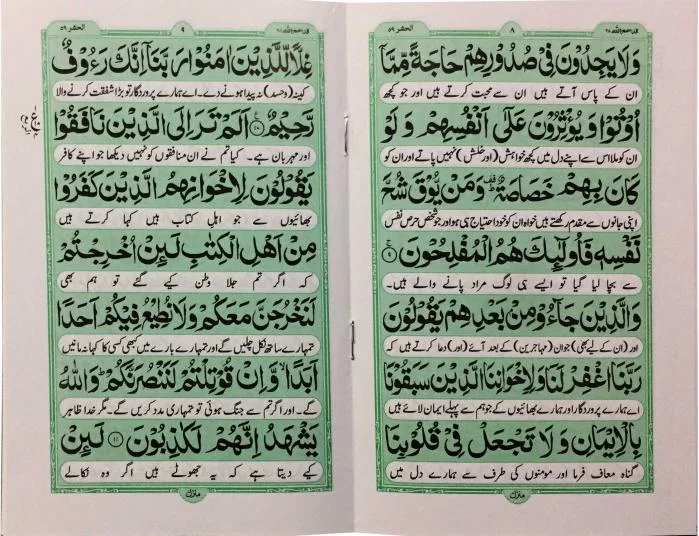 قد سمع الله ٢٨ ٨ الحشر ٥٩
وَلَا يَجِدُوْنَ فِيْ صُدُوْرِهِمْ حَاجَةً مِّمَّآ
ان کے پاس آتے ہیں ان سے محبت کرتے ہیں اور جو کچھ
اُوْتُوْا وَيُؤْثِرُوْنَ عَلٰٓى اَنْفُسِهِمْ وَلَوْ
ان کو ملا اس سے اپنے دل میں کچھ خواہش (اور خلش) نہیں پاتے اور ان کو
كَانَ بِهِمْ خَصَاصَةٌ ۗ وَمَنْ يُّوْقَ شُحَّ
اپنی جانوں سے مقدم رکھتے ہیں خواہ ان کو خود احتیاج ہی ہو اور جو شخص حرص نفس
نَفْسِهٖ فَاُولٰٓئِكَ هُمُ الْمُفْلِحُوْنَ ۚ ٩
سے بچا لیا گیا تو ایسے ہی لوگ مراد پانے والے ہیں۔
وَالَّذِيْنَ جَآءُوْ مِنْۢ بَعْدِهِمْ يَقُوْلُوْنَ
اور (ان کے لیے بھی) جو ان (مہاجرین) کے بعد آئے (اور) دعا کرتے ہیں کہ
رَبَّنَا اغْفِرْ لَنَا وَلِاِخْوَانِنَا الَّذِيْنَ سَبَقُوْنَا
اے ہمارے پروردگار اور ہمارے بھائیوں کے جو ہم سے پہلے ایمان لائے ہیں
بِالْاِيْمَانِ وَلَا تَجْعَلْ فِيْ قُلُوْبِنَا
گناہ معاف فرما اور مومنوں کی طرف سے ہمارے دل میں
منزل
قد سمع الله ٢٨ ٩ الحشر ٥٩
غِلًّا لِّلَّذِيْنَ اٰمَنُوْا رَبَّنَآ اِنَّكَ رَءُوْفٌ
کینہ (وحسد) نہ پیدا ہونے دے۔ اے ہمارے پروردگار تو بڑا شفقت کرنے والا
رَّحِيْمٌ ١٠ اَلَمْ تَرَ اِلَى الَّذِيْنَ نَافَقُوْا
اور مہربان ہے۔ کیا تم نے ان منافقوں کو نہیں دیکھا جو اپنے کافر
يَقُوْلُوْنَ لِاِخْوَانِهِمُ الَّذِيْنَ كَفَرُوْا
بھائیوں سے جو اہل کتاب ہیں کہا کرتے ہیں
مِنْ اَهْلِ الْكِتٰبِ لَئِنْ اُخْرِجْتُمْ
کہ اگر تم جلا وطن کیے گئے تو ہم بھی
لَنَخْرُجَنَّ مَعَكُمْ وَلَا نُطِيْعُ فِيْكُمْ اَحَدًا
تمہارے ساتھ نکل چلیں گے اور تمہارے بارے میں کبھی کسی کا کہا نہ مانیں
اَبَدًا ۙ وَّاِنْ قُوْتِلْتُمْ لَنَنْصُرَنَّكُمْ ۭ وَاللّٰهُ
گے۔ اور اگر تم سے جنگ ہوئی تو تمہاری مدد کریں گے۔ مگر خدا ظاہر
يَشْهَدُ اِنَّهُمْ لَكٰذِبُوْنَ ١١ لَئِنْ
کیے دیتا ہے کہ یہ جھوٹے ہیں اگر وہ نکالے
منزل